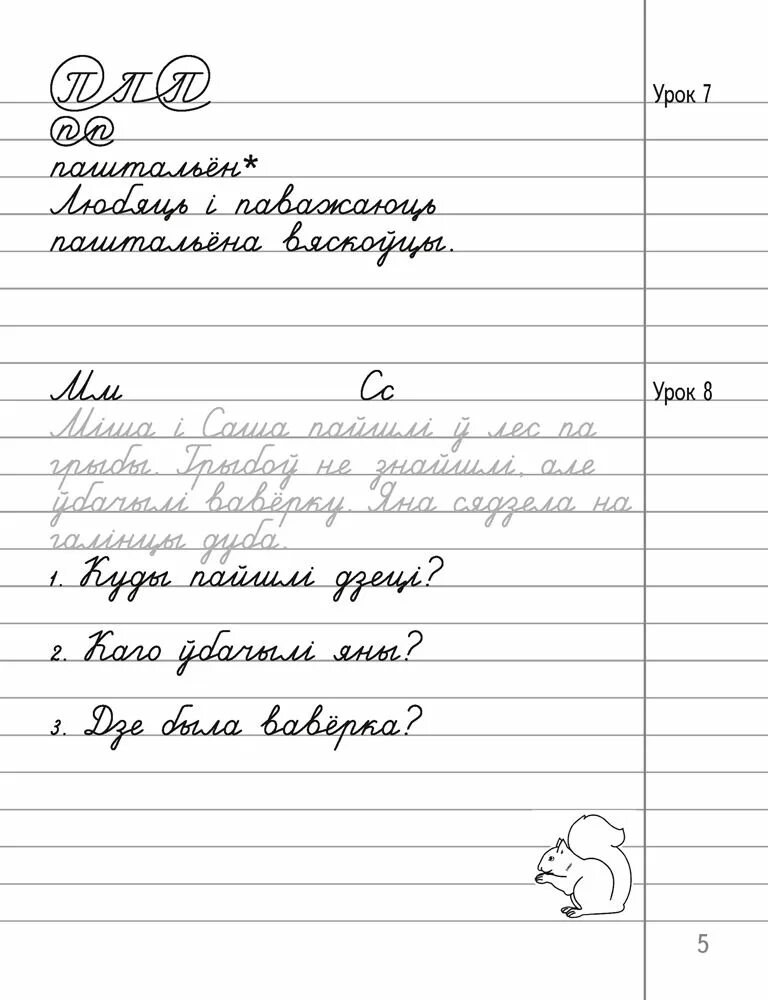 П П П
Урок 7
п п
паштальён*
Любяць і паважаюць
паштальёна вяскоўцы.
Мм Сс
Урок 8
Міша і Саша пайшлі ў лес па
грыбы. Грыбоў не знайшлі, але
ўбачылі вавёрку. Яна сядзела на
галінцы дуба.
1. Куды пайшлі дзеці?
2. Каго ўбачылі яны?
3. Дзе была вавёрка?
5